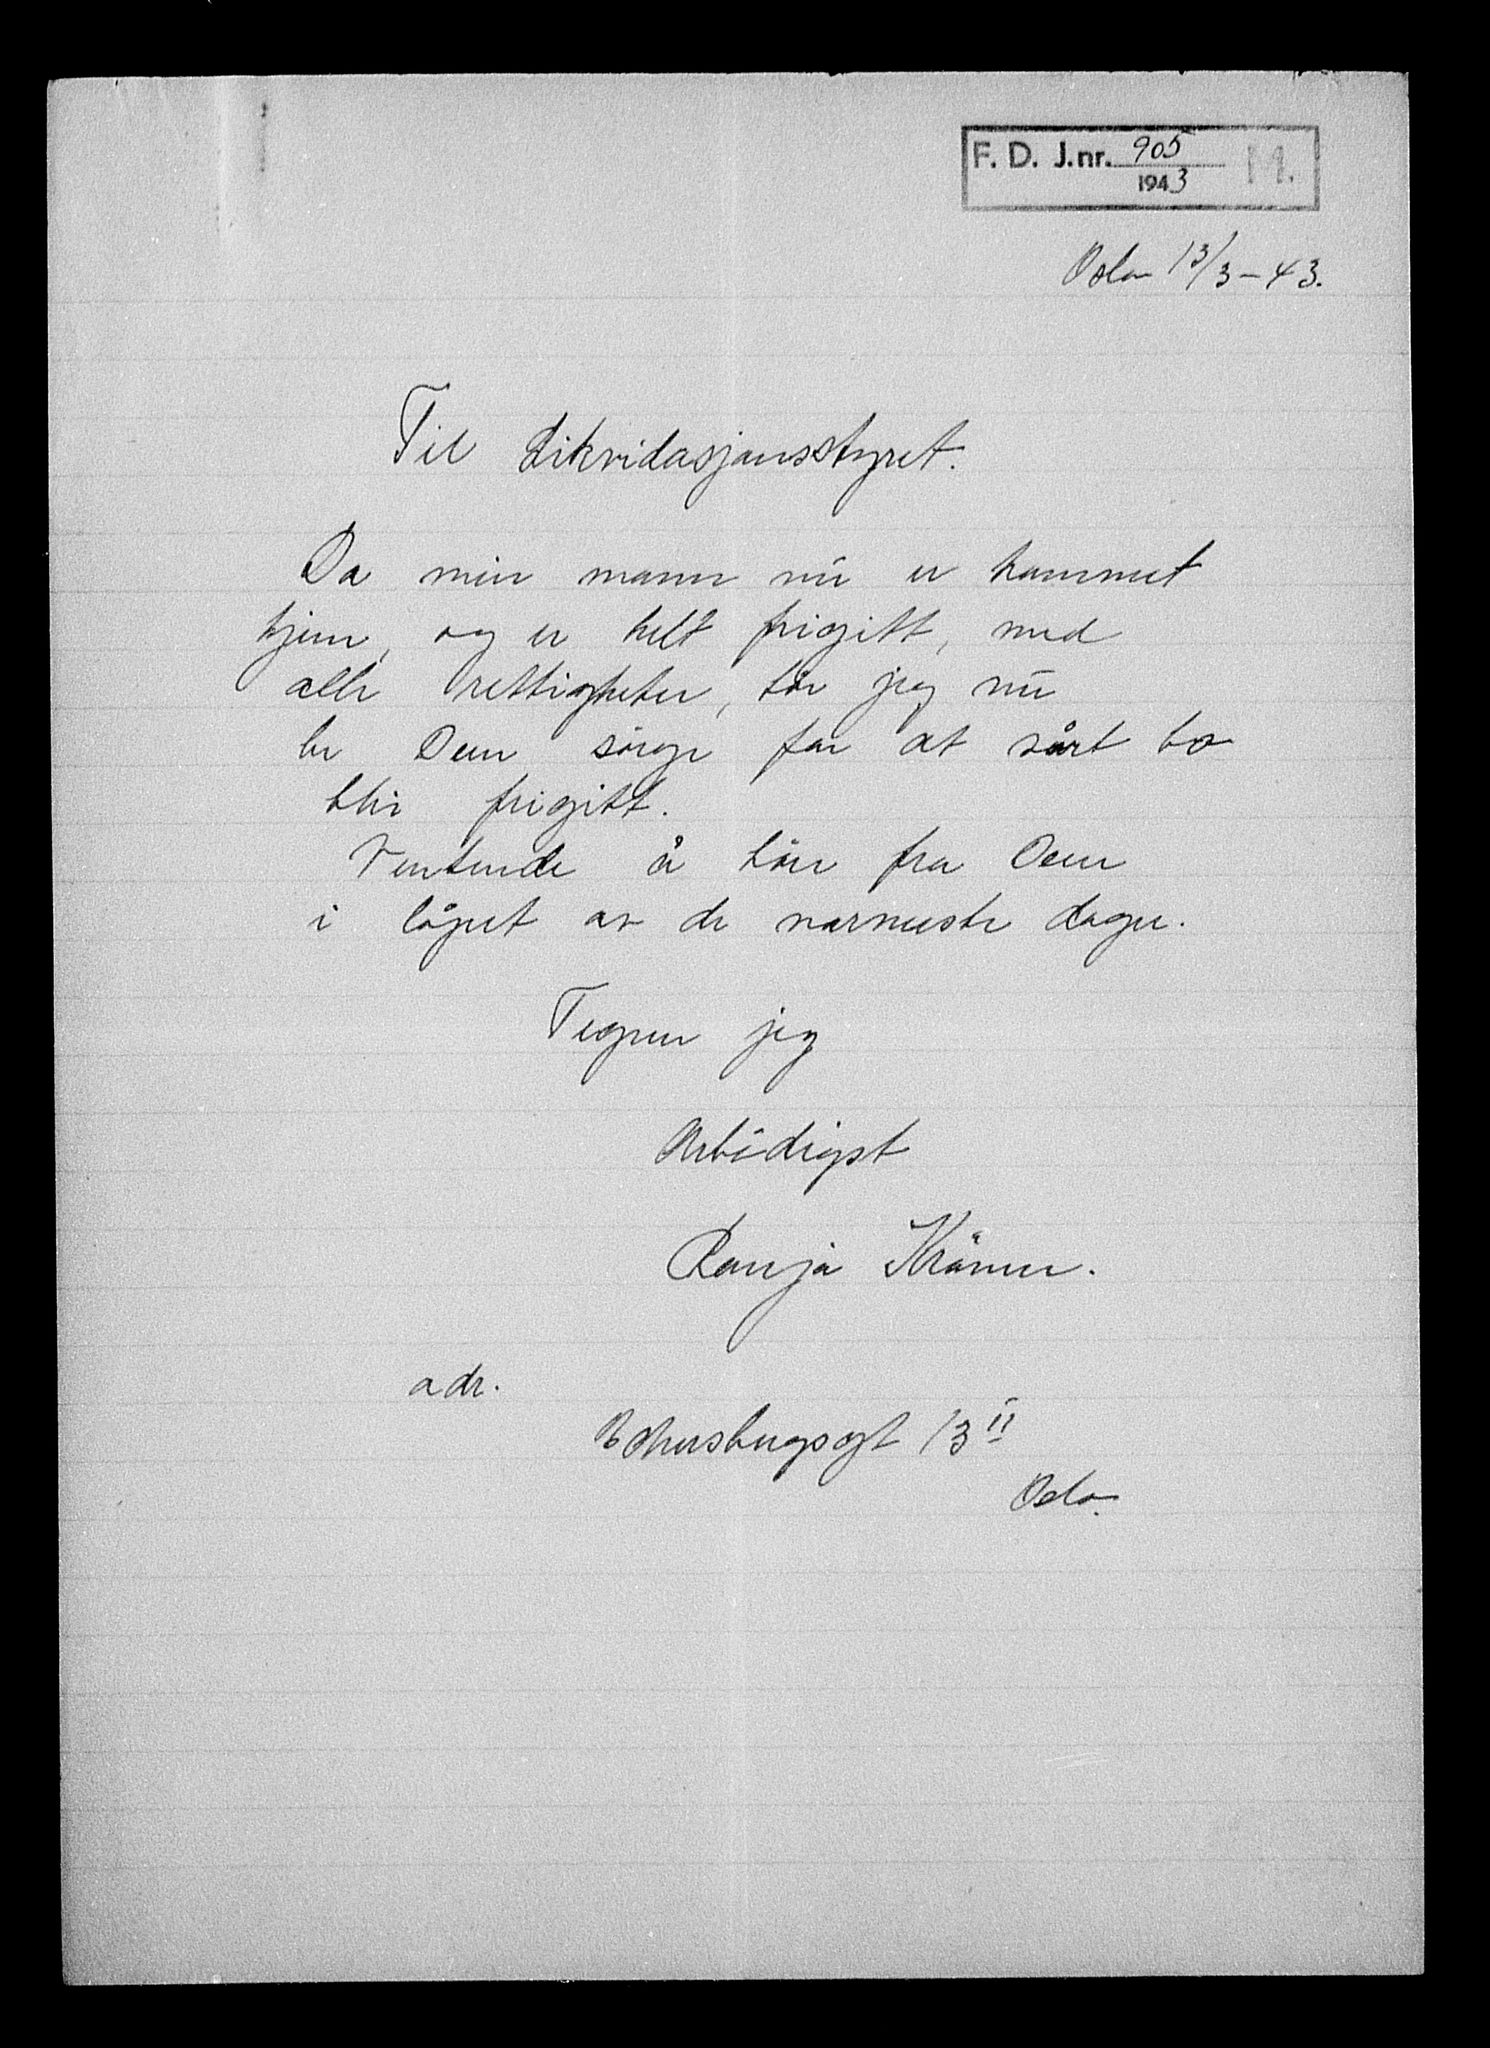 F. D. J.nr. 905
1943
Oslo 13/3-43.
Til Likvidasjonsstyret.
Da min mann nu er kommet
hjem, og er helt frigitt, med
alle rettigheter, tör jeg nu
be Dem sörge for at vårt bo
blir frigitt.
Ventende å höre fra Dem
i löpet av de nærmeste dager.
Tegner jeg
Ärbödigst
Ranja Krämer.
adr.
13 II
Oslo.